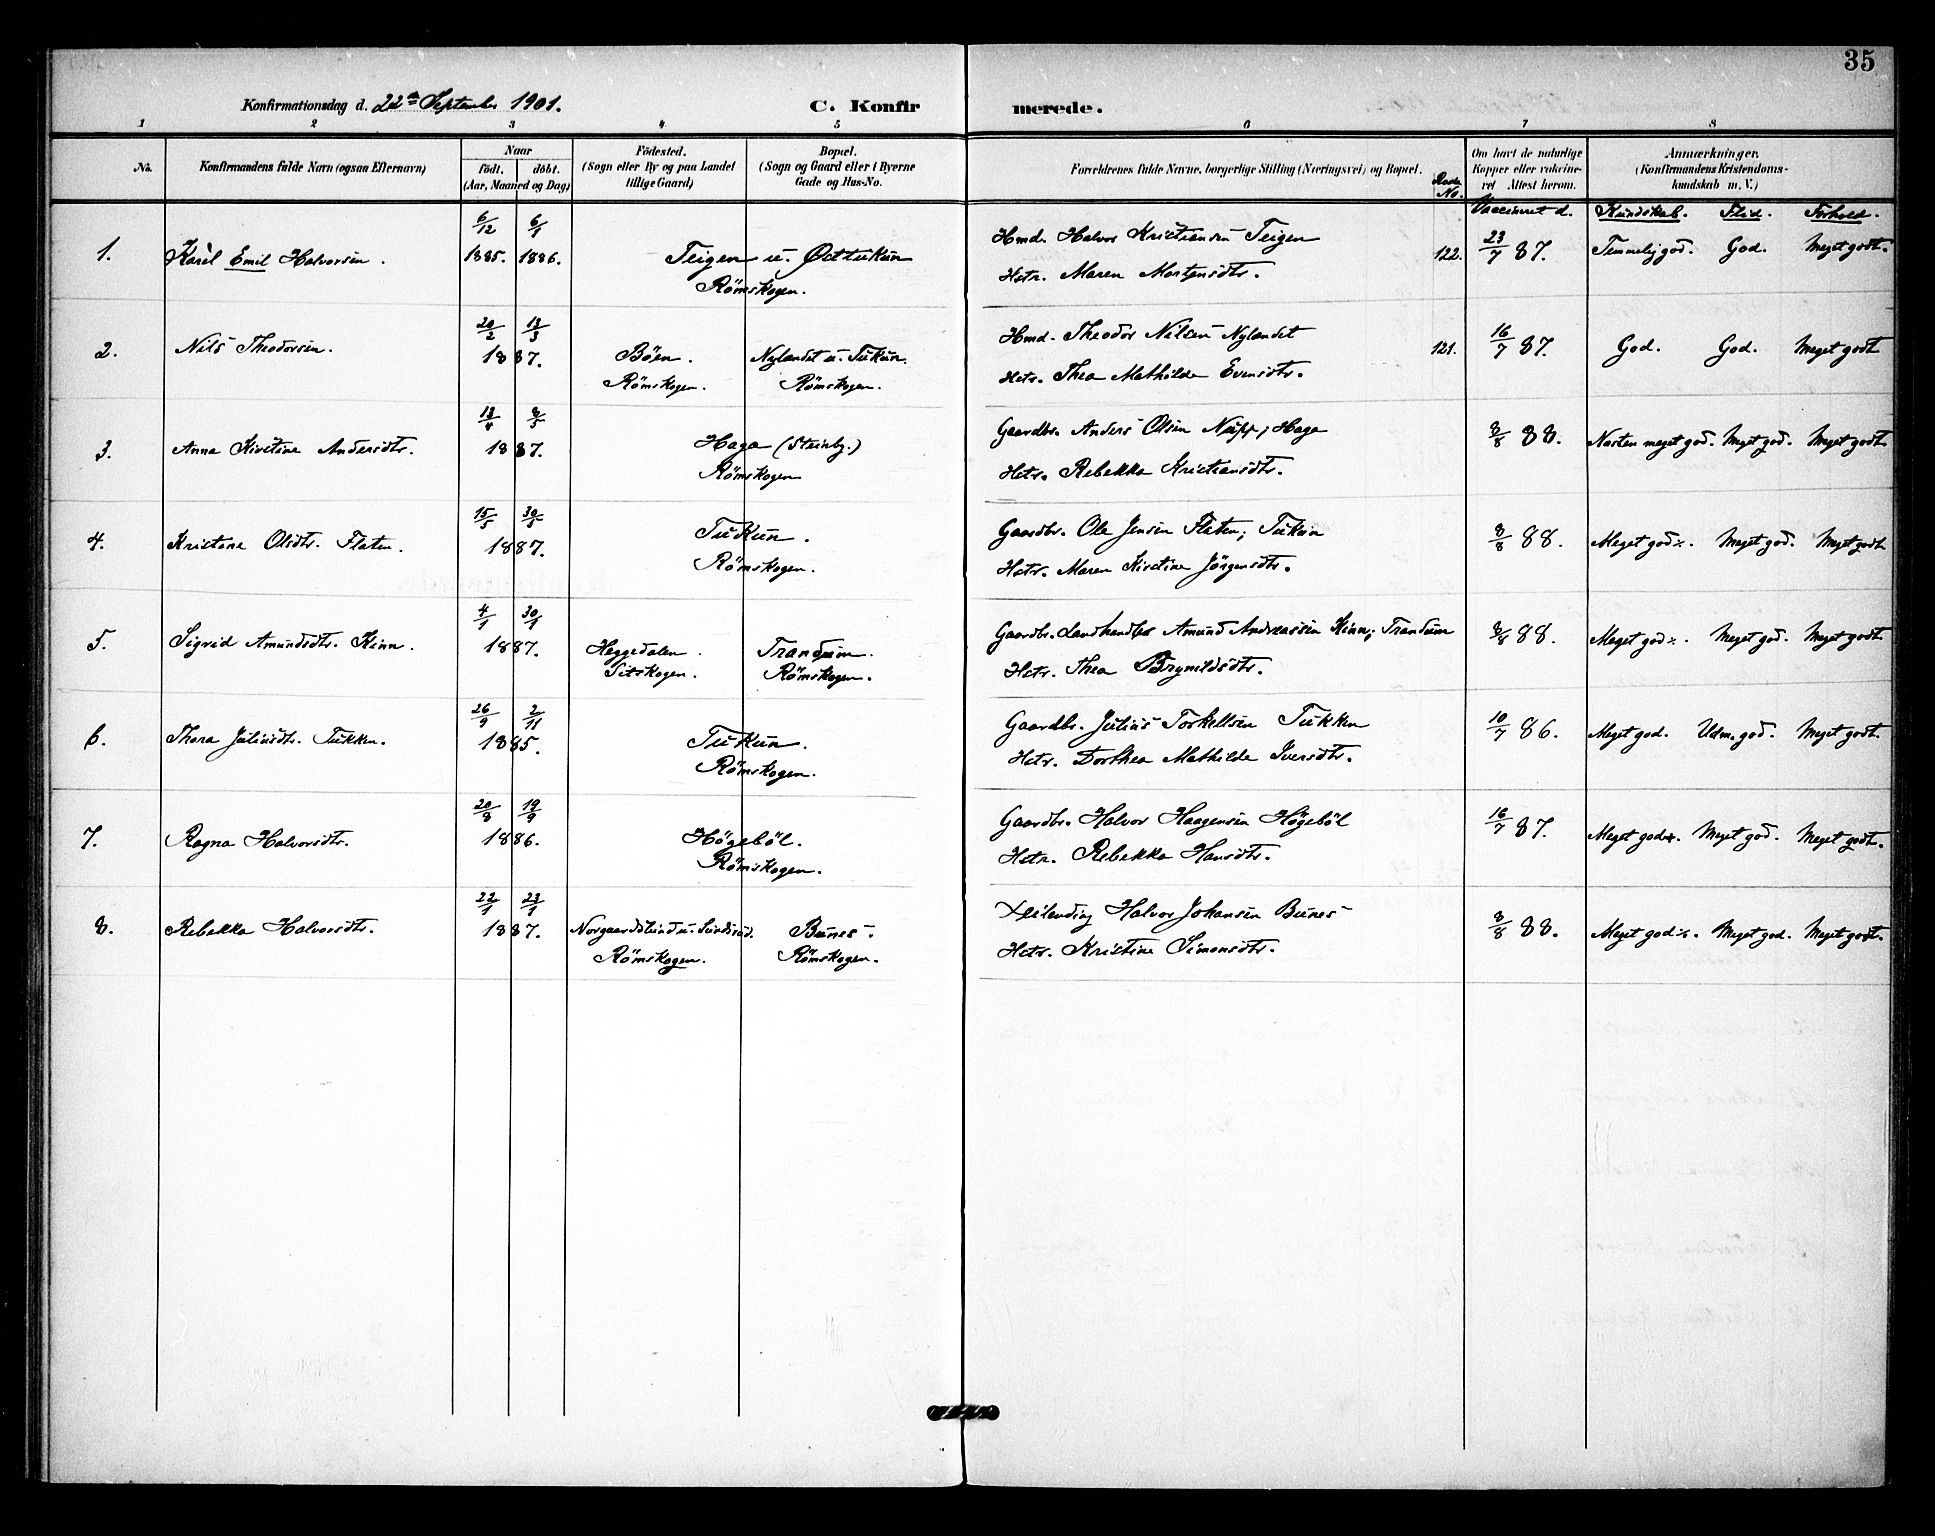 35
Konfirmationsdag d. 22de September 1901. C. Konfirmerede.
1 2 3 4 5 6 7 8
No. Konfirmandens fulde Navn (ogsaa Efternavn) Naar födt. döbt. (Aar, Maaned og Dag) Födested. (Sogn eller By og paa Landet tillige Gaard) Bopæl. (Sogn og Gaard eller i Byerne Gade og Hus-No. Forældrenes fulde Navne, borgerlige Stilling (Næringsvei) og Bopæl. Rode No. Om havt de naturlige Kopper eller vakcineret Attest herom. Anmærkninger. (Konfirmandens Kristendomskundskab m. V.)
Vaccineret d. Kundskab. Flid. Forhold.
6/12 6/1
Hmd. Halvor Kristiansen Teigen
1. Karl Emil Halvorsen. 1885. 1886. Teigen u. Östtukun 122. 23/7 87. Temmelig god. God. Meget godt.
Römskogen. Hstr. Maren Mortensdtr.
20/2 13/3
Hmd. Theodor Nilsen Nylandet
2. Nils Theodorsen. 1887. Böen. Nylandet u. Tukun. 121. 16/7 87. God. God. Meget godt
Römskogen. Römskogen. Hstr. Thea Mathilde Evensdtr.
13/4 8/5
Gaardbr. Anders Olsen Nupp, Haga
3. Anna Kirstine Andersdtr. 1887. Haga (Steinbg.) 8/8 88. Næsten meget god. Meget god. Meget godt
Römskogen Hstr. Rebekka Kristiansdtr.
15/5 30/5
Gaardbr. Ole Jensen Flaten, Tukun
4. Kristane Olsdtr. Flaten. 1887. Tukun. 8/8 88. Meget god. Meget god. Meget godt
Römskogen. Hstr. Maren Kirstine Jörgensdtr.
4/1 30/1
Gaardbr. Landhandler Amund Andreassen Kinn, Trandum
5. Sigrid Amundsdtr. Kinn. 1887. Heggedalen. Trandum. 8/8 88. Meget god. Meget god. Meget godt
Setskogen. Römskogen. Hstr. Thea Brynildsdtr.
26/9 2/11
Gaardbr. Julius Torkelsen Tukken
6. Thora Juliusdtr. Tukken. 1885. Tukun. 10/7 86. Meget god. Udm. god. Meget godt.
Römskogen. Hstr. Dorthea Mathilde Iversdtr.
20/8 19/9
Gaardbr. Halvor Haagensen Högeböl
7. Ragna Halvorsdtr. 1886. Högeböl. 16/7 87. Meget god. Meget god. Meget godt.
Römskogen. Hstr. Rebekka Hansdtr.
22/1 23/1
Leilending Halvor Johansen Bunes
8. Rebekka Halvorsdtr. 1887. Bunes. 8/8 88. Meget god. Meget god. Meget godt.
Römskogen. Römskogen. Hstr. Kristine Simonsdtr.